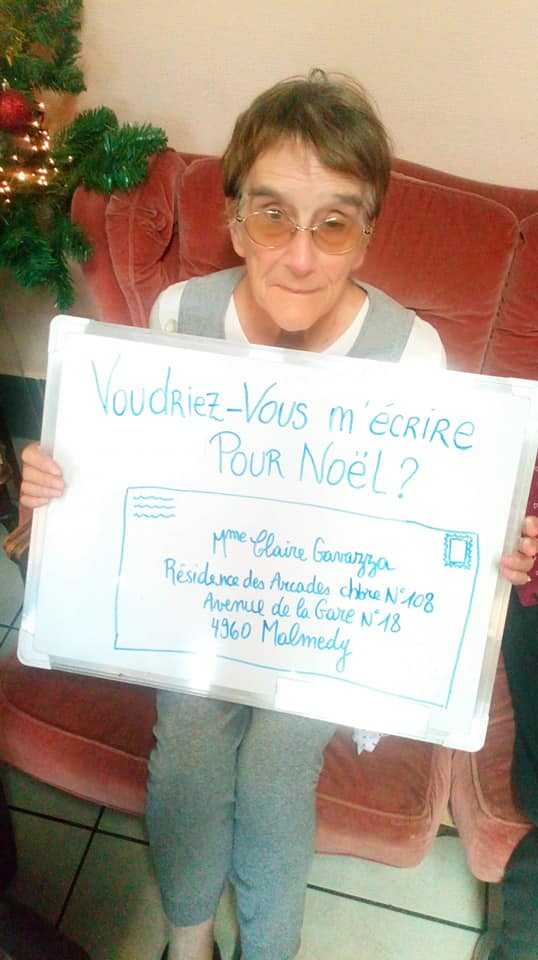 Voudriez-Vous m'écrire
Pour Noël?
Mme Claire Gavazza
Résidence des Arcades chbre N°108
Avenue de la Gare N°18
4960 Malmedy